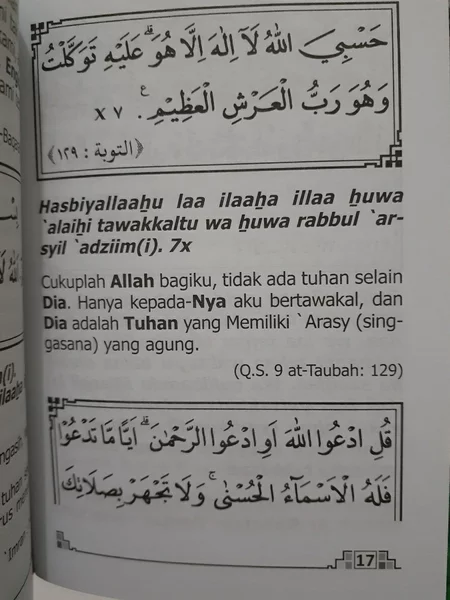 حَسْبِيَ اللّٰهُ لَآ اِلٰهَ اِلَّا هُوَ ۗ عَلَيْهِ تَوَكَّلْتُ
وَهُوَ رَبُّ الْعَرْشِ الْعَظِيْمِ ࣖ . ٧ x
﴿التوبة : ١٢٩﴾
Hasbiyallaaẖu laa ilaaẖa illaa ẖuwa
`alaiẖi tawakkaltu wa ẖuwa rabbul `ar-
syil `adziim(i). 7x
Cukuplah Allah bagiku, tidak ada tuhan selain
Dia. Hanya kepada-Nya aku bertawakal, dan
Dia adalah Tuhan yang Memiliki `Arasy (sing-
gasana) yang agung.
(Q.S. 9 at-Taubah: 129)
قُلِ ادْعُوا اللّٰهَ اَوِ ادْعُوا الرَّحْمٰنَ ۗ اَيًّا مَّا تَدْعُوْا
فَلَهُ الْاَسْمَآءُ الْحُسْنٰى ۚ وَلَا تَجْهَرْ بِصَلَاتِكَ
17